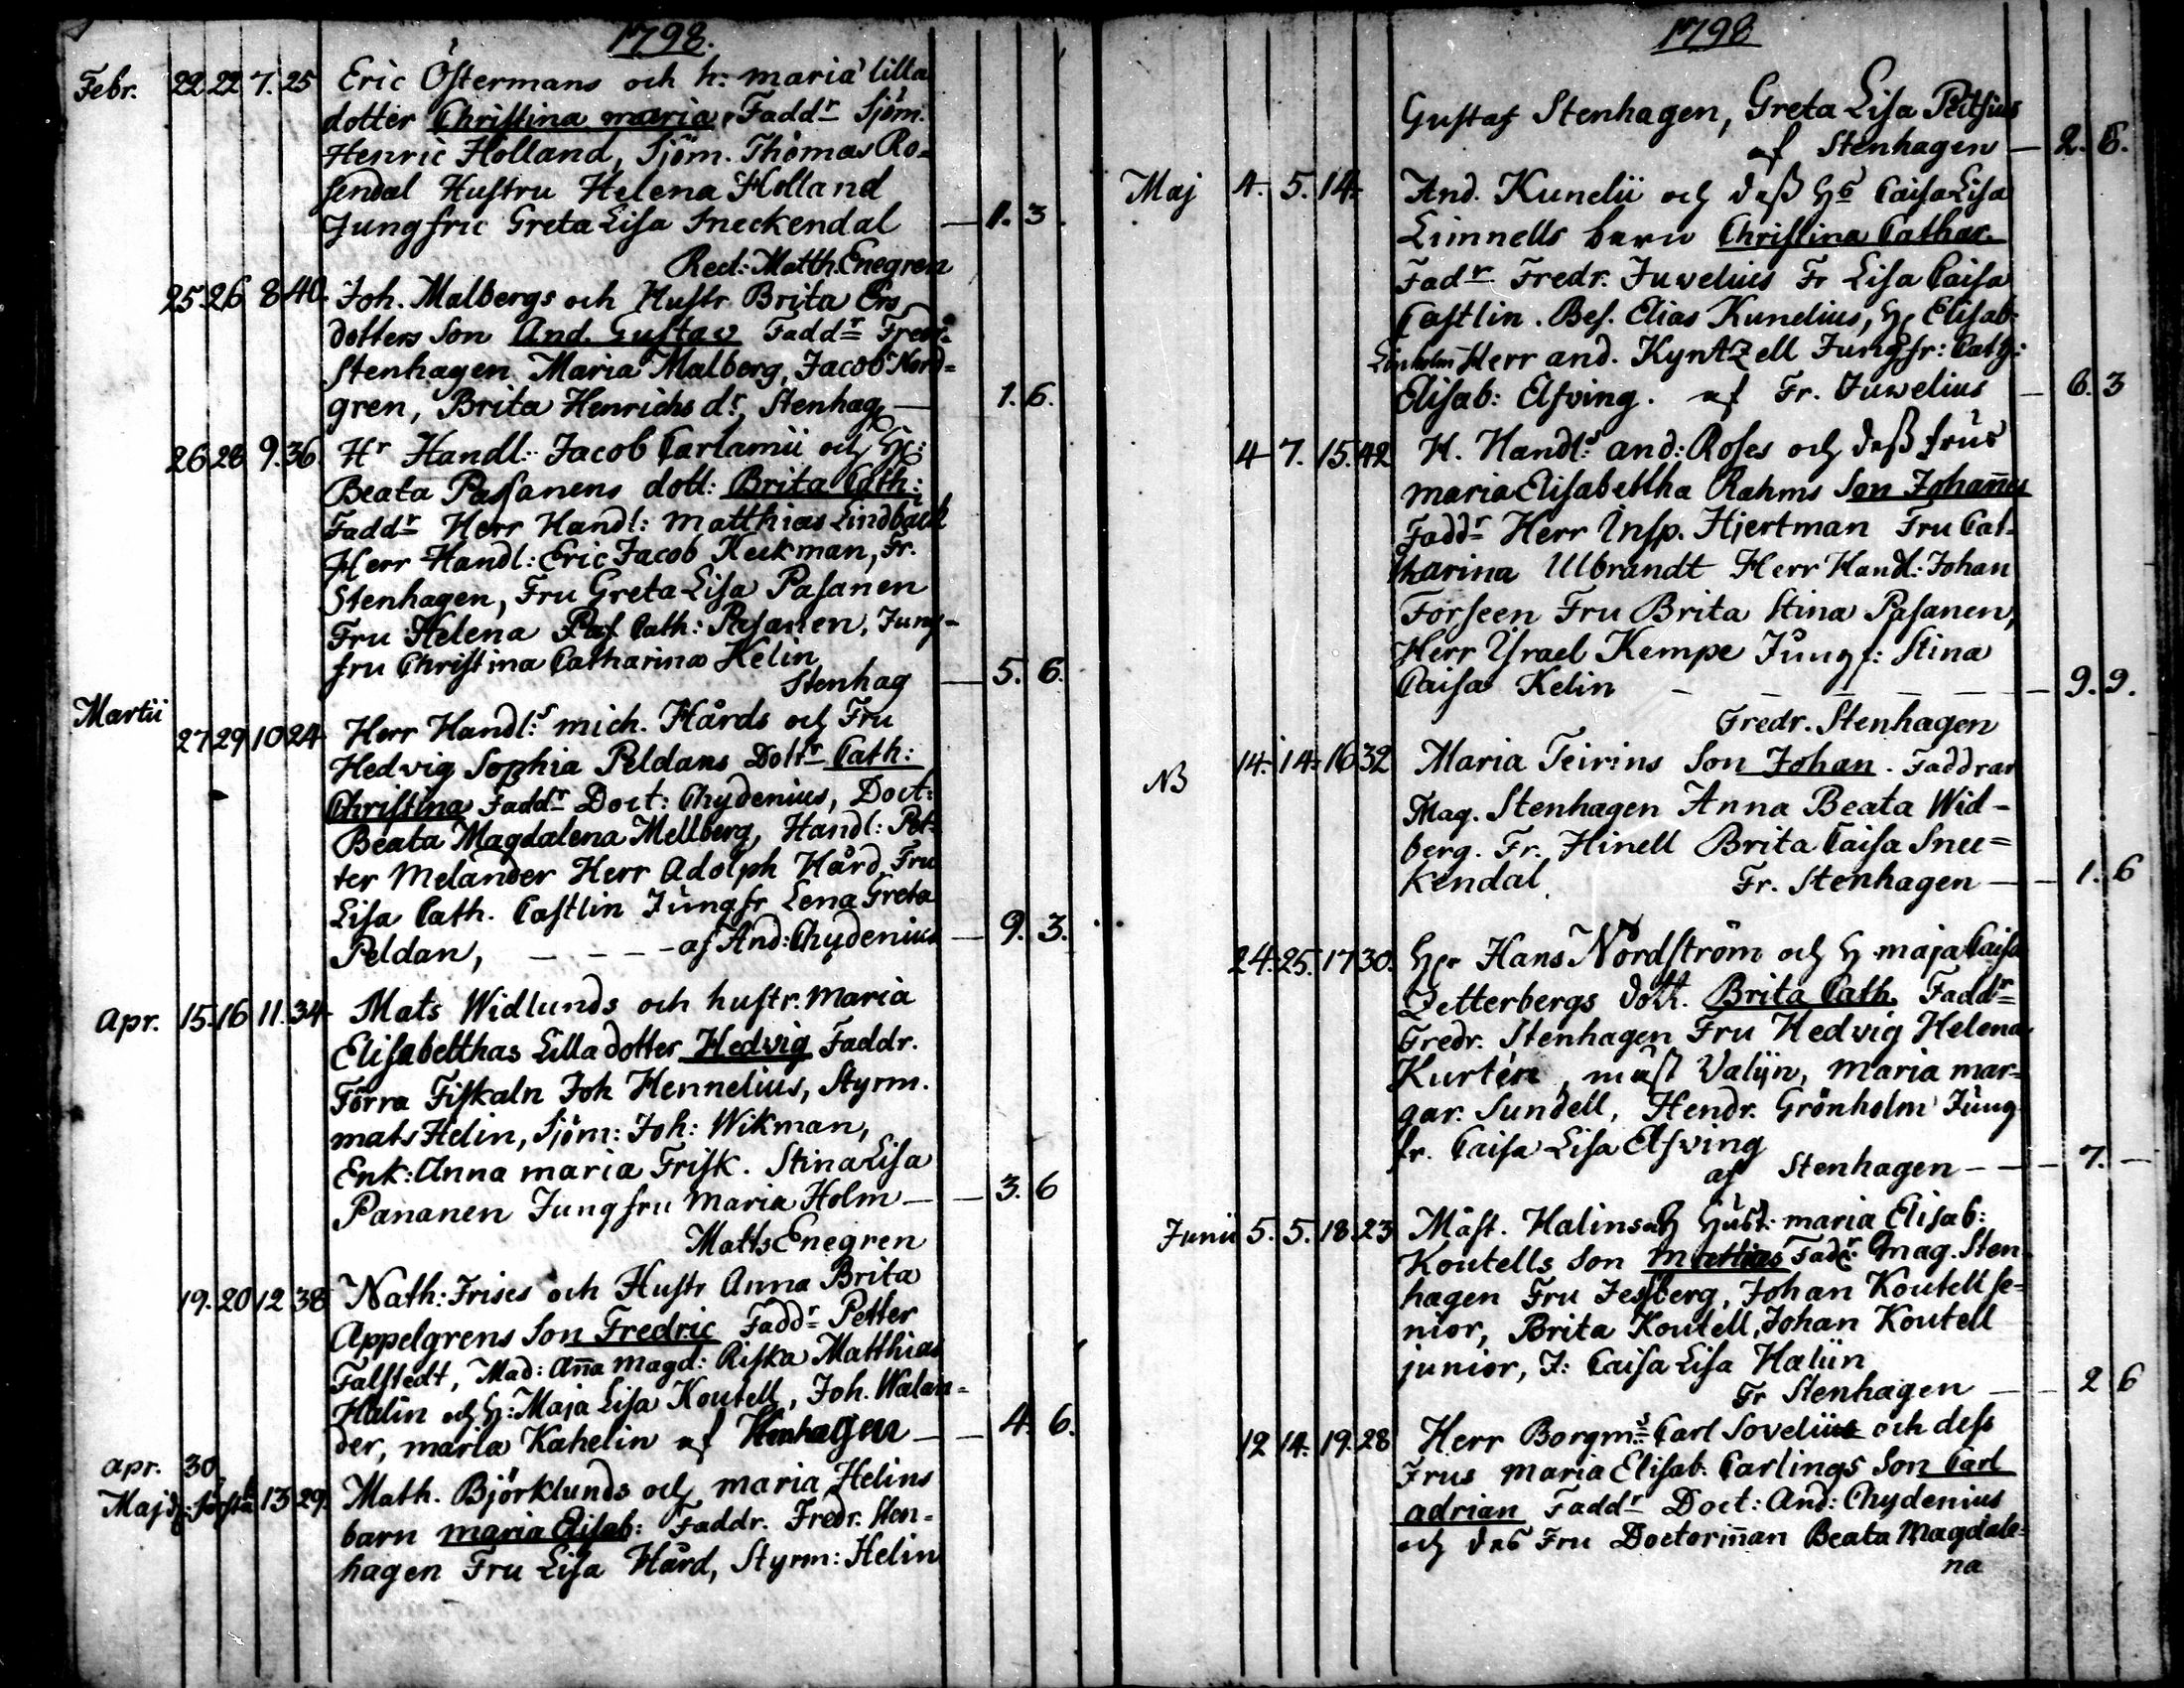 1798.
Febr. 22 22 7. 25 Eric Östermans och h: maria lilla
dotter Christina maria, Faddr Sjöm.
Henric Holland, Sjöm. Thomas Ro-
sendal Hustru Helena Holland
Jungfru Greta Lisa Sneckendal — 1. 3.
Red: Matth. Enegren
25 26 8 40. Joh. Malbergs och Hustr Brita Ers
dotters Son And. Gustav Faddr Fredr.
Stenhagen Maria Malberg, Jacob Nord=
gren, Brita Henrichs dr, Stenhag — 1. 6.
26 28 9. 36 Hr Handl: Jacob Carlamii och
Beata Passanens dott: Brita Cath:
Faddr Herr Handl: Matthias Lindbäck
Herr Handl: Eric Jacob Keckman, Fr.
Stenhagen, Fru Greta Lisa Pasanen
Fru Helena Cath: Pasanen, Jung-
fru Christina Catharina Helin
Stenhag — 5. 6.
Martii
27 29 10 24 Herr Handl:s mich. Hårds och Fru
Hedvig Sophia Peldans Dottr Cath:
Christina Faddr Doct: Chydenius, Doct:
Beata Magdalena Mellberg, Handl: Pet-
ter Melander Herr Adolph Hård, Fru
Lisa Cath. Castlin Jungfr Lena Greta
Peldan, — — — af And: Chydenius — 9. 3.
Apr. 15. 16 11. 34 Mats Widlunds och hustr. Maria
Elisabetthas Lilla dotter Hedvig Faddr.
Förra Fiskaln Joh Hennelius, Styrm.
mats Helin, Sjöm: Joh: Wikman,
Enk: Anna maria Frisk. Stina Lisa
Pananen Jungfru Maria Holm — 3. 6
Matts Enegren
19. 20 12 38 Nath: Frises och Hustr Anna Brita
Appelgrens Son Fredric Faddr Petter
Falstedt, Mad: Aña Magd: Riska Matthias
Halin och H: Maja Lisa Koutell, Joh. Walan=
der, maria Kahelin af Stenhagen — 4. 6.
apr. 30
Maj d: första 13 29. Math. Björklunds och maria Helins
barn maria Elisab: Faddr. Fredr. Sten=
hagen Fru Lisa Hård, Styrm: Helin
1798
Gustaf Stenhagen, Greta Lisa
af Stenhagen — 2. 6.
Maj 4. 5. 14. And. Kunelii och dess Caisa Lisa
Limnells barn Christina Cathar.
Fadr Fredr. Juvelius Fr Lisa Caisa
Castlin. Bes. Elias Kunelius, H Elisab:
Herr and. Kyntzell Jungfr: Cath:
Elisab: Elfving. af Fr. Juwelius — 6. 3
4 7. 15. 42 H. Handl:s and: Roses och dess frus
maria Elisabettha Rahms Son Johañes
Faddr Herr Insp. Hjertman Fru Cat-
harina Ulbrandt Herr Handl: Johan
Forseen Fru Brita Stina Pasanen,
Herr Israel Kempe Jungf: Stina
Caisa Kelin — — — — — 9. 9.
Fredr. Stenhagen
NB 14. 14. 16 32 Maria Teirins Son Johan. Faddrar
Mag. Stenhagen Anna Beata Wid-
berg. Fr. Hinell Brita Caisa Snee=
kendal. Fr. Stenhagen — 1. 6
24. 25. 17 30. Herr Hans Nordström och H maja Caisa
Zetterbergs dott. Brita Cath. Faddr
Fredr. Stenhagen Fru Hedvig Helena
Kurtén, mäst Valijn, Maria mar=
gar. Sundell, Hendr. Grönholm Jung
fr. Caisa Lisa Elfving
af Stenhagen — 7. —
Junii 5. 5. 18. 23 Mäst. Halins och Hust: maria Elisab:
Koutells Son Mattias Fadr: mag. Sten
hagen Fru Jesberg, Johan Koutell se-
nior, Brita Koutell, Johan Koutell
junior, J: Caisa Lisa Haliin
Fr Stenhagen — 2 6
12 14. 19. 28 Herr Borgm:s Carl Sovelius och dess
Frus Maria Elisab. Carlings Son Carl
adrian Faddr Doct: And: Chydenius
och des Fru Doctoriñan Beata Magdale=
na